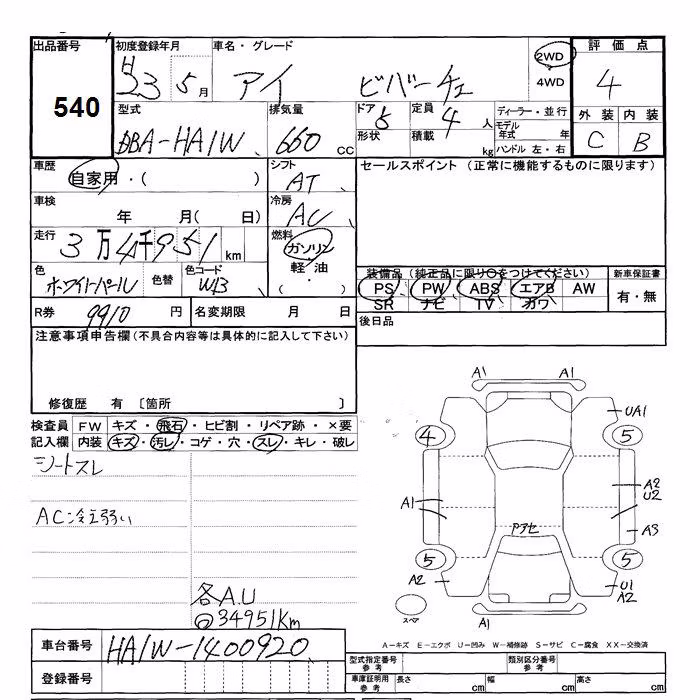 出品番号
540
初度登録年月
H23 5月
車名・グレード
アイ ビバーチェ
2WD
4WD
評価点
4
外装 内装
C B
型式
DBA-HA1W
排気量
660 CC
ドア 5
形状
定員 4人
積載 kg
ディーラー・並行
モデル年式 年
ハンドル 左・右
車歴
自家用・( )
シフト
AT
セールスポイント (正常に機能するものに限ります)
車検
年 月( 日)
冷房
AC
走行
3万4千951km
燃料
ガソリン
軽・油
・( )
色
ホワイトパール
色替
色コード
W13
装備品 (純正品に限り○をつけてください)
PS PW ABS エアB AW
SR ナビ TV カワ
新車保証書
有・無
R券 9910 円
名変期限 月 日
後日品
注意事項申告欄(不具合内容等は具体的に記入して下さい)
修復歴 有 〔箇所 〕
検査員記入欄
FW キズ・飛石・ヒビ割・リペア跡・×要
内装 キズ・汚レ・コゲ・穴・スレ・キレ・破レ
シートスレ
AC冷え弱い
各A.U
34951Km
A1 A1
UA1
4 5
A1
A2
U2
A3
Pアセ
5 5
A2
U1
A2
スペア
A1
A-キズ E-エクボ U-凹み W-補修跡 S-サビ C-腐食 XX-交換済
車台番号 HA1W-1400920
登録番号
型式指定番号 参考
類別区分番号 参考
車庫証明用 参考
長さ cm 幅 cm 高さ cm